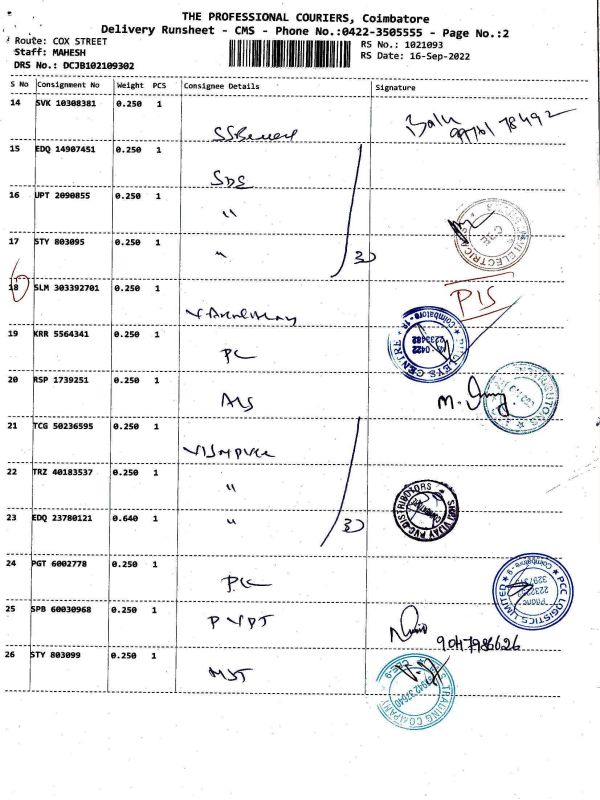 THE PROFESSIONAL COURIERS, Coimbatore
Delivery Runsheet - CMS - Phone No.:0422-3505555 - Page No.:2
Route: COX STREET
Staff: MAHESH
DRS No.: DCJB102109302
RS No.: 1021093
RS Date: 16-Sep-2022
S No Consignment No Weight PCS Consignee Details Signature
14 SVK 10308381 0.250 1
Balu
99761 78492
15 EDQ 14907451 0.250 1
SDS
16 UPT 2090855 0.250 1
"
17 STY 803095 0.250 1
"
18 SLM 303392701 0.250 1
PIS
19 KRR 5564341 0.250 1
PC
20 RSP 1739251 0.250 1
AIS
M.
21 TCG 50236595 0.250 1
22 TRZ 40183537 0.250 1
"
23 EDQ 23780121 0.640 1
"
SHRI VIJAY PVC DISTRIBUTORS
24 PGT 6002778 0.250 1
PCC LOGISTICS LIMITED
Coimbatore - 9
25 SPB 60030968 0.250 1
PVPT
26 STY 803099 0.250 1
MST
TRADING COMPANY